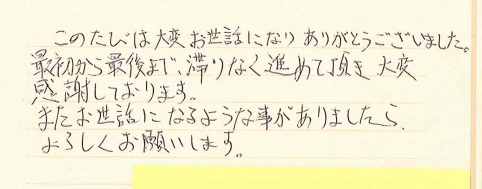 このたびは大変お世話になりありがとうございました。
最初から最後まで、滞りなく進めて頂き大変
感謝しております。
またお世話になるような事がありましたら、
よろしくお願いします。